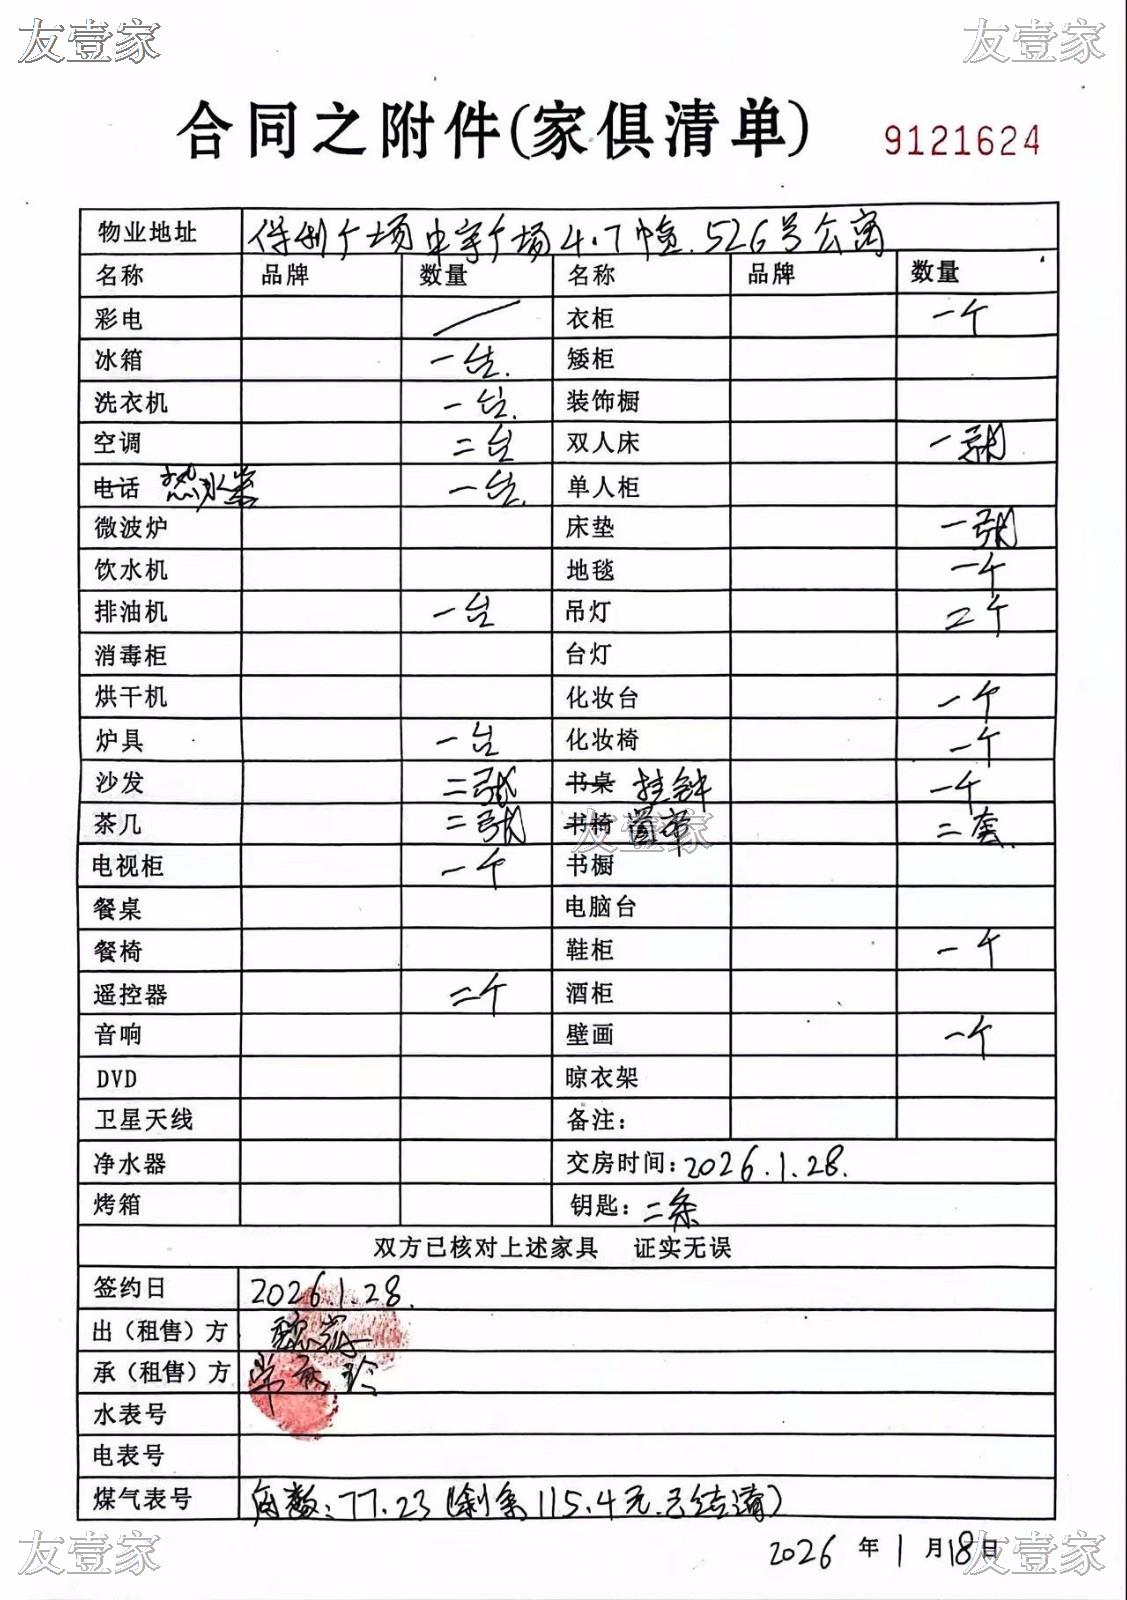 友壹家 友壹家
合同之附件(家俱清单) 9121624
物业地址 保利广场中宇广场4.7幢.526号公寓
名称 品牌 数量 名称 品牌 数量
彩电 衣柜 一个
冰箱 一台. 矮柜
洗衣机 一台. 装饰橱
空调 二台 双人床 一张
电话 热水器 一台. 单人柜
微波炉 床垫 一张
饮水机 地毯 一个
排油机 一台 吊灯 二个
消毒柜 台灯
烘干机 化妆台 一个
炉具 一台 化妆椅 一个
沙发 二张 书桌 挂钟 一个
茶几 二张 书椅 窗帘 二套.
友壹家
电视柜 一个 书橱
餐桌 电脑台
餐椅 鞋柜 一个
遥控器 二个 酒柜
音响 壁画 一个
DVD 晾衣架
卫星天线 备注:
净水器 交房时间:2026.1.28.
烤箱 钥匙:二条
双方已核对上述家具 证实无误
签约日 2026.1.28.
出(租售)方
承(租售)方
水表号
电表号
煤气表号 底数:77.23(剩余115.4元.已结清)
2026年1月18日
友壹家 友壹家